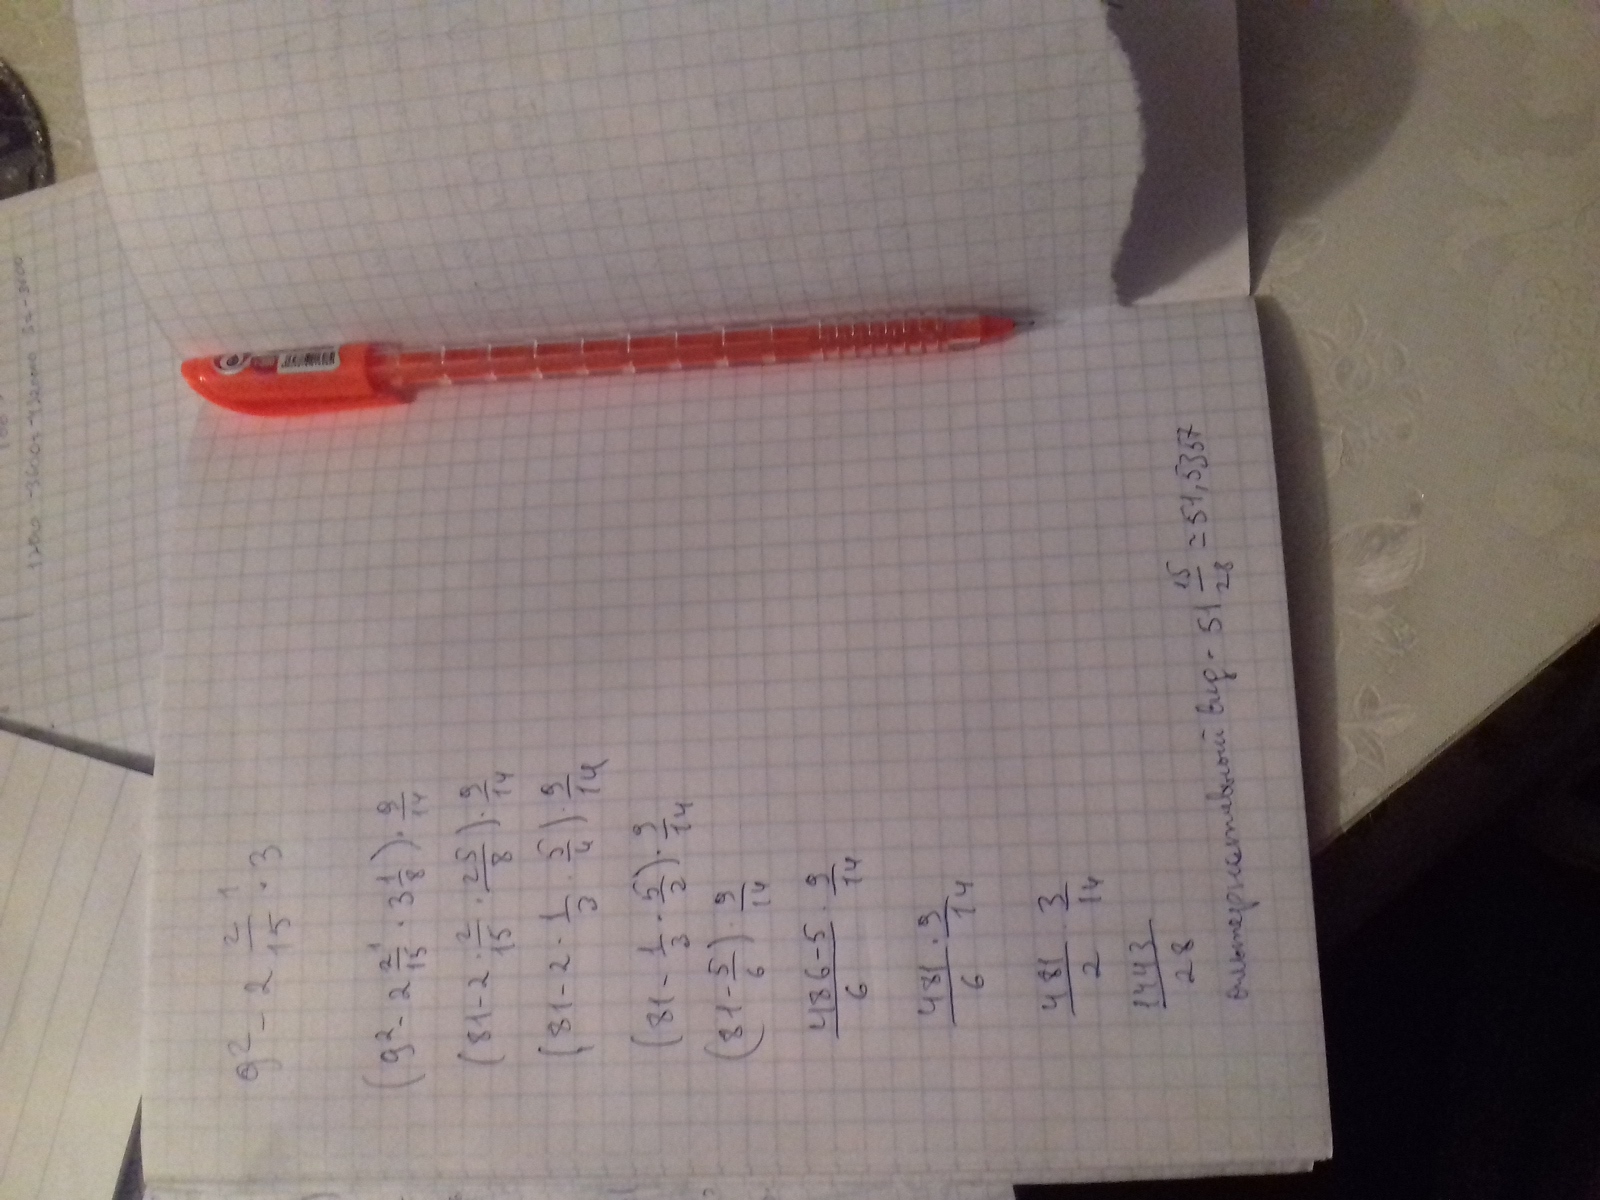 9² - 2 2/15 1 · 3
(9² - 2 2/15 1 · 3 1/8) · 9/14
(81 - 2 · 2/15 · 25/8) · 9/14
(81 - 2 · 1/3 · 5/4) · 9/14
(81 - 1/3 · 5/2) · 9/14
(81 - 5/6) · 9/14
486-5/6 · 9/14
481/6 · 9/14
481/2 · 3/14
1443/28
альтернативный вид - 51 15/28 ≈ 51,5357